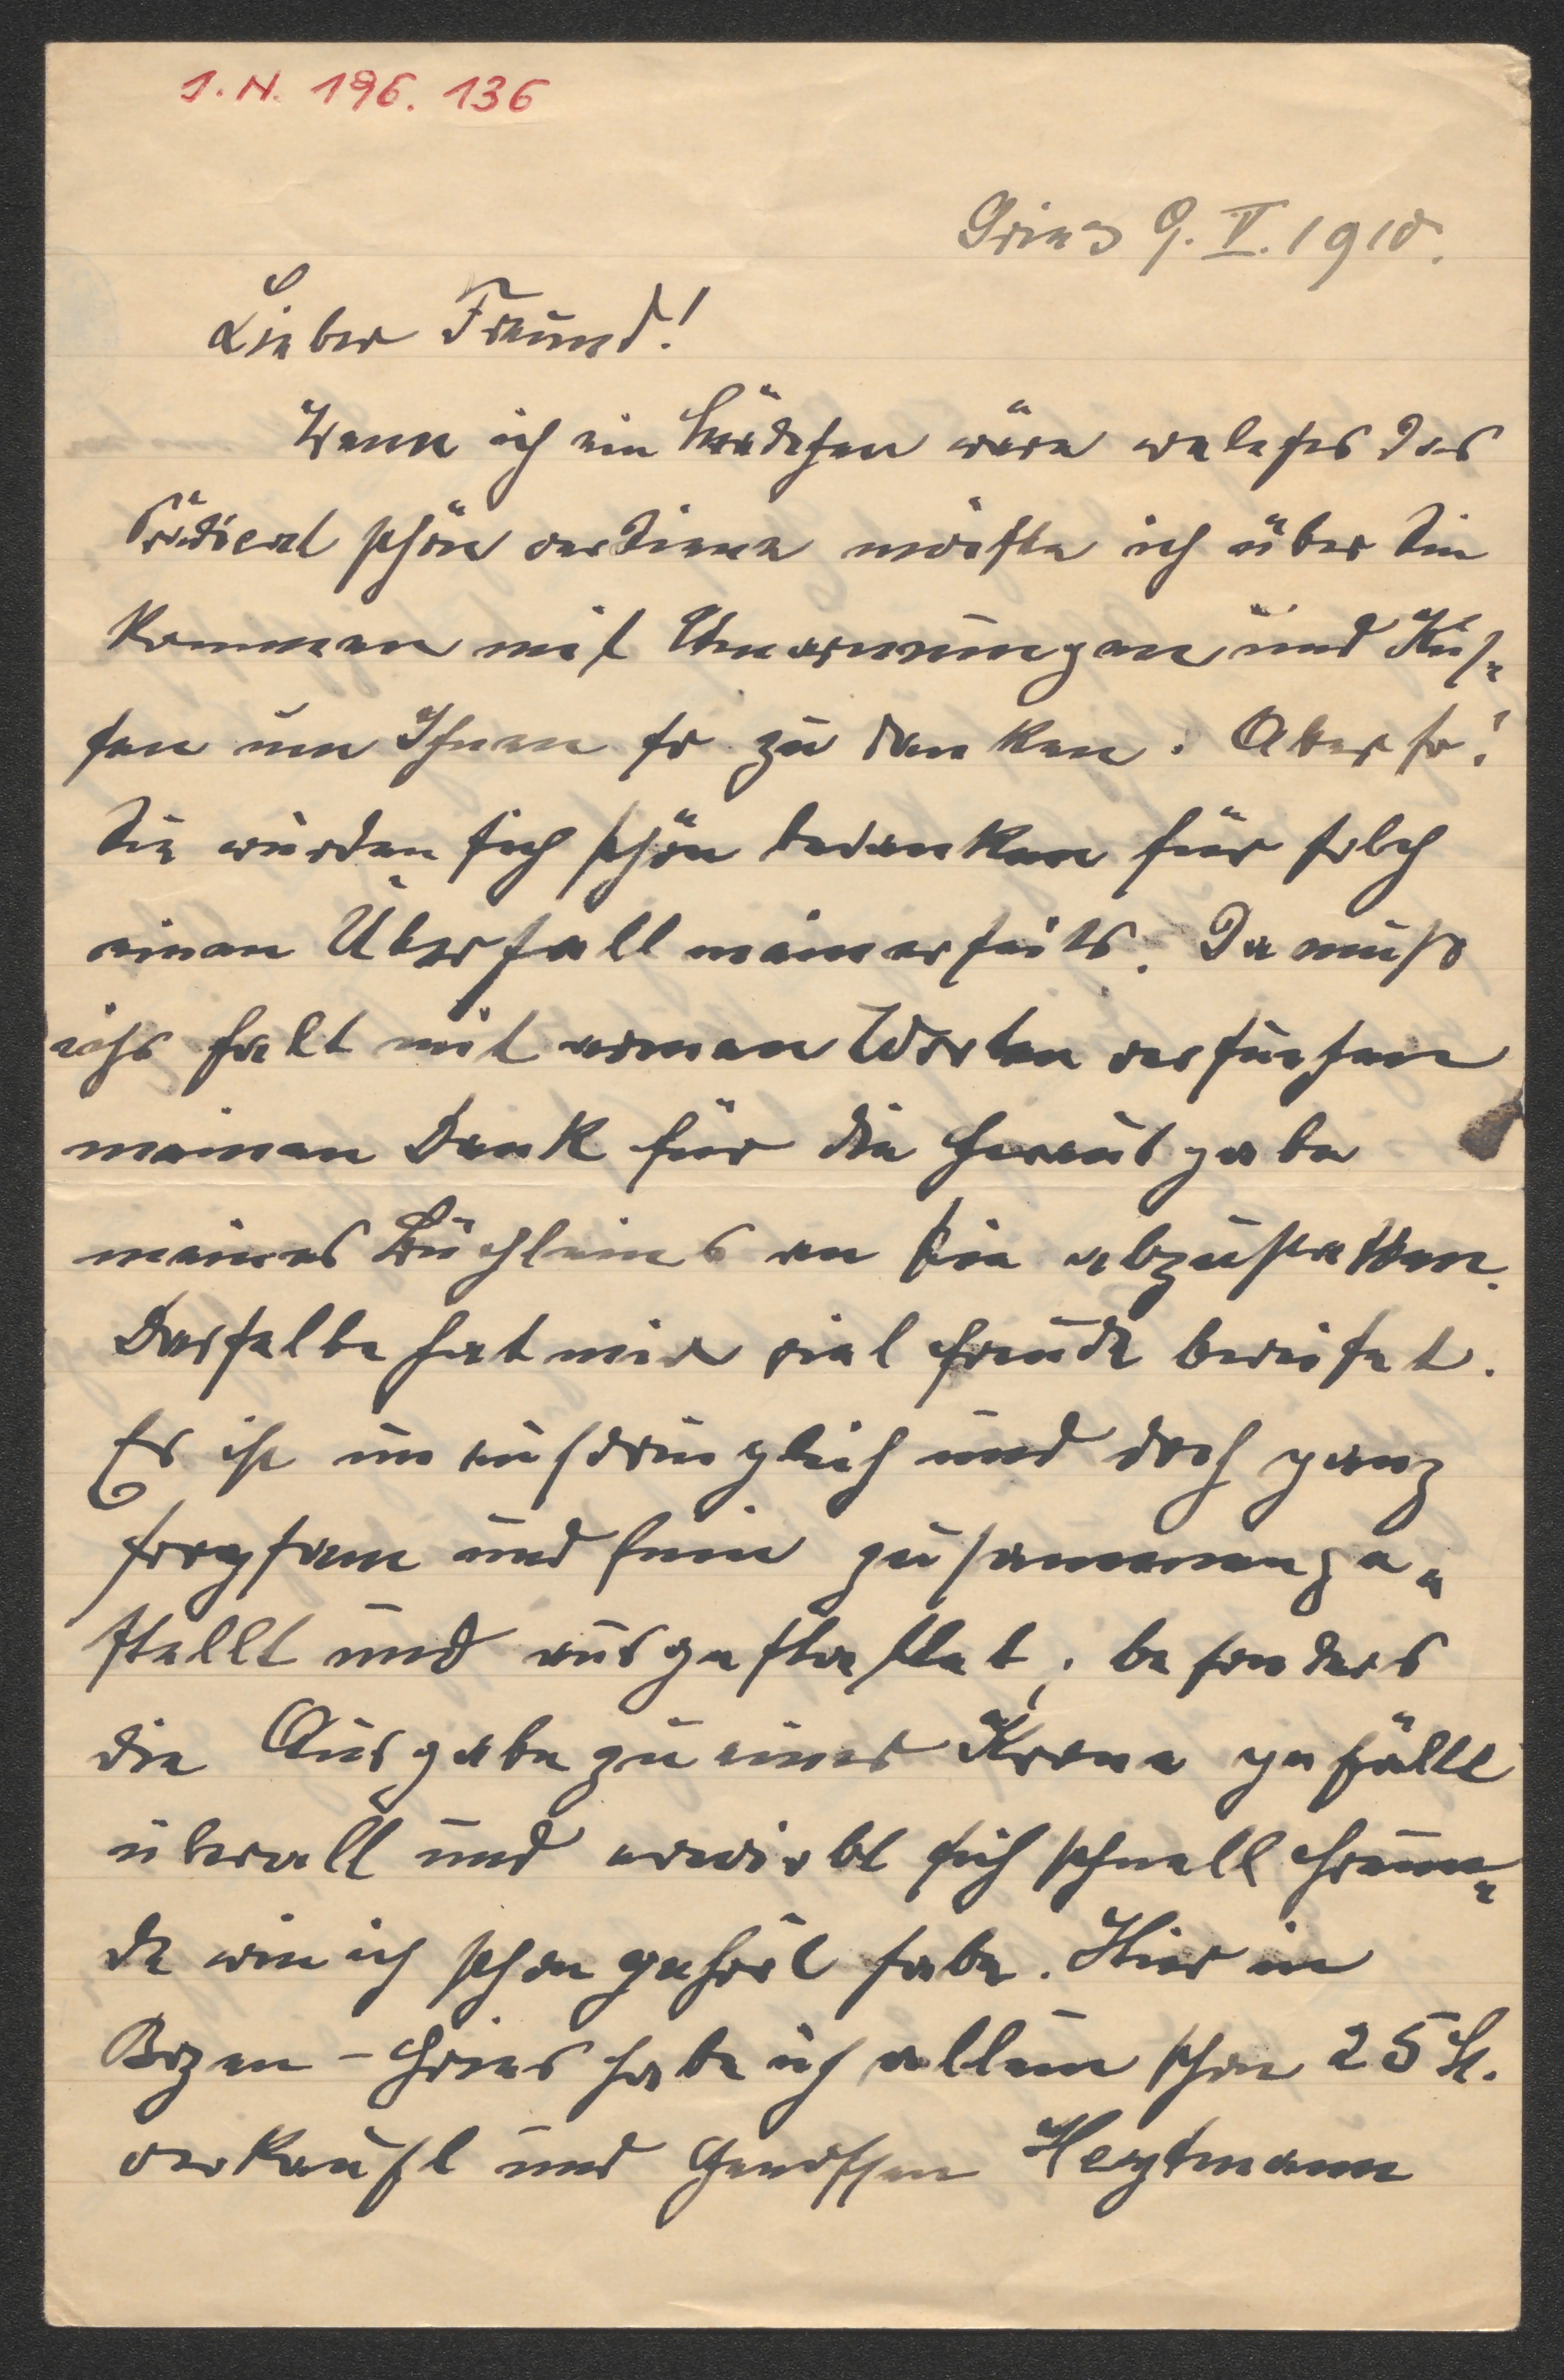 I. N. 196. 136
Gries 9. V. 1910.
Lieber Freund!
Wenn ich ein Mädchen wäre welches das
Prädicat schön verdiene möchte ich über Sie
kommen mit Umarmungen und Küs„
sen um Ihnen so zu danken. Aber so!
Sie würden sich schön bedanken für solch
einen Überfall meinerseits. Da muß
ichs halt mit armen Worten versuchen
meinen Dank für die Herausgabe
meines Büchleins an Sie abzustatten.
Dasselbe hat mir viel Freude bereitet.
Es ist unaufdringlich und doch ganz
sorgsam und fein zusammenge„
stellt und ausgestattet, besonders
die Ausgabe zu einer Krone gefällt
überall und erwirbt sich schnell Freun„
de wie ich schon gehört habe. Hier in
Bozen - Gries habe ich allein schon 25 St.
verkauft und Genossen